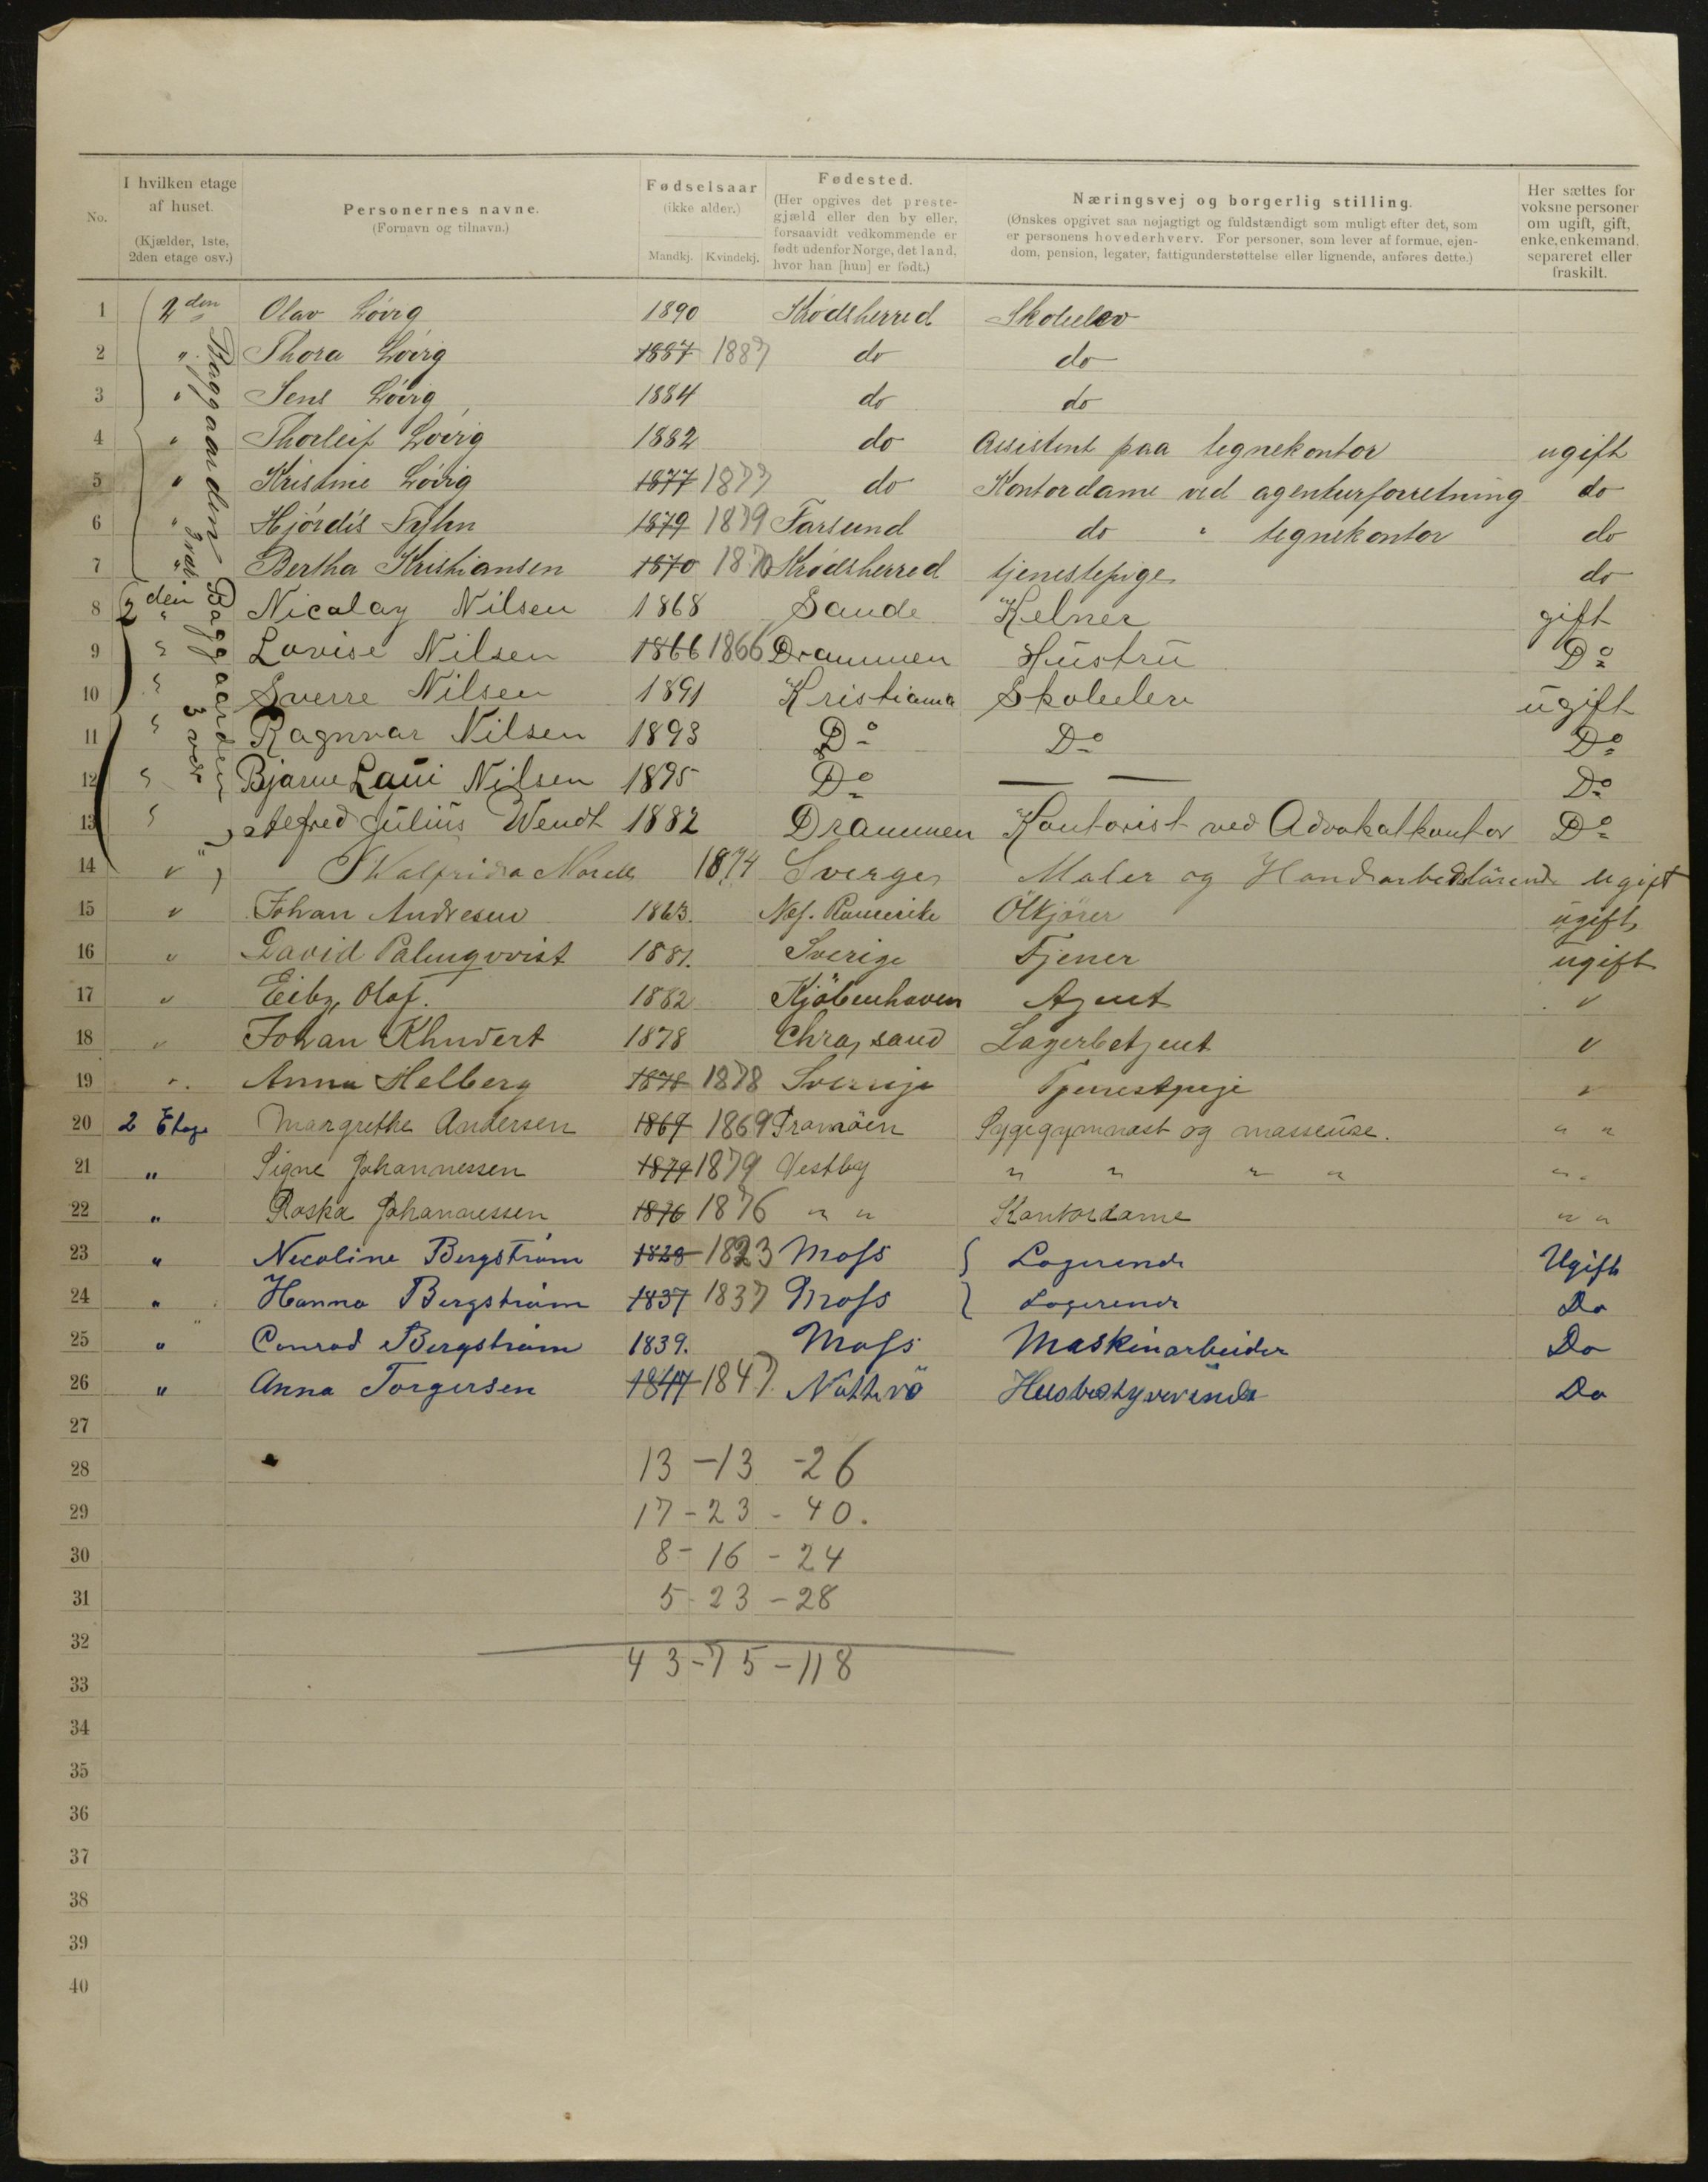 No. I hvilken etage af huset. (Kjælder, 1ste, 2den etage osv.) Personernes navne. (Fornavn og tilnavn.) Fødselsaar (ikke alder.) Mandkj. Kvindekj. Fødested. (Her opgives det prestegjæld eller den by eller, forsaavidt vedkommende er født udenfor Norge, det land, hvor han [hun] er født.) Næringsvej og borgerlig stilling. (Ønskes opgivet saa nøjagtigt og fuldstændigt som muligt efter det, som er personens hovederhverv. For personer, som lever af formue, ejendom, pension, legater, fattigunderstøttelse eller lignende, anføres dette.) Her sættes for voksne personer om ugift, gift, enke, enkemand, separeret eller fraskilt.
1 2den Olav Løvig 1890 Krødsherred Skoleelev
2 " Thora Løvig 1887 1887 do do
3 " Jens Løvig 1884 do do
4 " Thorleif Løvig 1882 do Assistent paa tegnekontor ugift
5 " Kristine Løvig 1877 1877 do Kontordame ved agenturforretning do
6 " Hjørdis 1879 1879 Farsund do " tegnekontor do
7 " Bertha Kristiansen 1870 1870 Krødsherred tjenestepige do
Baggaarden
8 2den " Nicolay Nilsen 1868 Sande Kelner gift
9 " Lovise Nilsen 1866 1866 Drammen Hustru Do
10 " Sverre Nilsen 1891 Kristiania Skoleelev ugift
11 " Ragnvar Nilsen 1893 Do Do Do
12 " Bjarne Laui Nilsen 1895 Do — — Do
13 " Alefred Julius Wendt 1882 Drammen Kontorist ved Advokatkontor Do
Baggaarden 3 vær
14 " Walfrida 1874 Sverge Maler og Handarbedslärende ugift
15 " Johan Andresen 1863. Nes. Romerike Ölkjører ugift
16 " David Palmqvvist 1881. Sverige Tjener ugift
17 " Eiby, Olaf. 1882 Kjøbenhaven Agent "
18 " Johan 1878 Chra,sand Lagerbetjent "
19 " Anna Helberg 1878 1878 Sverrige Tjenestpige "
20 2 Etage Margrethe Andersen 1869 1869 Tromöen Sygegymnast og masseuse. " "
21 " Signe Johannessen 1879 1879 Vestby " " " " " "
22 " Roska Johannessen 1876 1876 " " Kontordame " "
23 " Necoline Bergström 1823 1823 Moss Logerende Ugift
24 " Hanna Bergström 1837 1837 Moss Logerende Do
25 " Conrad Bergström 1839. Moss Maskinarbeider Do
26 " Anna Torgersen 1847 1847 Nøtterö Husbestyrerinde Do
27
28 13 - 13 - 26
29 17 - 23 - 40.
30 8 - 16 - 24
31 5 - 23 - 28
32
33 43 - 75 - 118
34
35
36
37
38
39
40